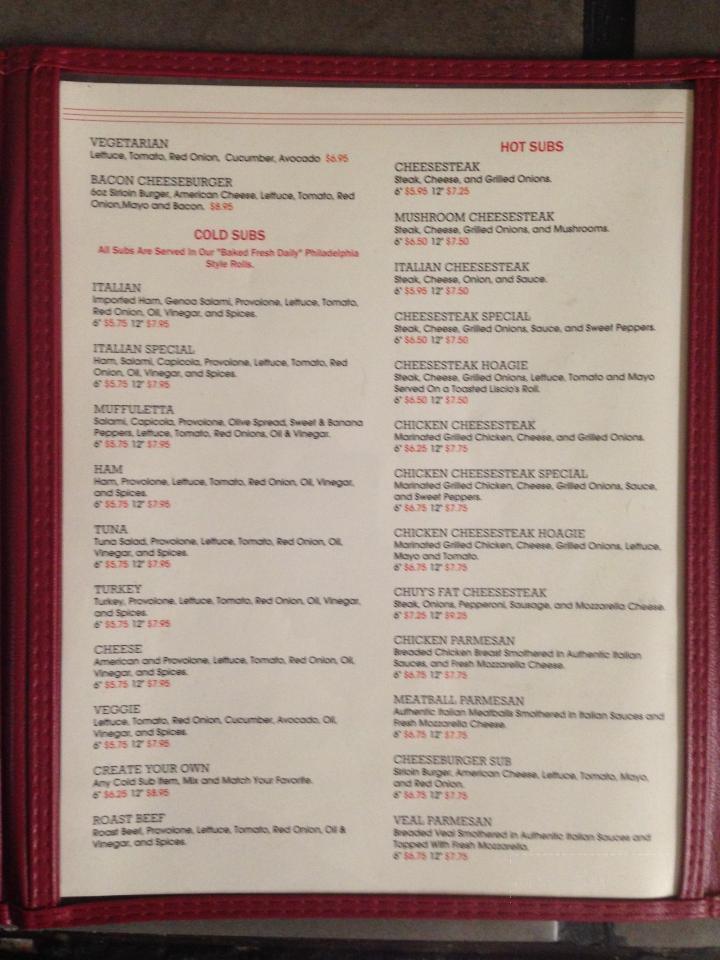 VEGETARIAN
Lettuce, Tomato, Red Onion, Cucumber, Avocado $6.95
BACON CHEESEBURGER
6oz Sirloin Burger, American Cheese, Lettuce, Tomato, Red
Onion,Mayo and Bacon. $8.95
COLD SUBS
All Subs Are Served In Our "Baked Fresh Daily" Philadelphia
Style Rolls.
ITALIAN
Imported Ham, Genoa Salami, Provolone, Lettuce, Tomato,
Red Onion, Oil, Vinegar, and Spices.
6" $5.75 12" $7.95
ITALIAN SPECIAL
Ham, Salami, Capicola, Provolone, Lettuce, Tomato, Red
Onion, Oil, Vinegar, and Spices.
6" $5.75 12" $7.95
MUFFULETTA
Salami, Capicola, Provolone, Olive Spread, Sweet & Banana
Peppers, Lettuce, Tomato, Red Onions, Oil & Vinegar.
6" $5.75 12" $7.95
HAM
Ham, Provolone, Lettuce, Tomato, Red Onion, Oil, Vinegar,
and Spices.
6" $5.75 12" $7.95
TUNA
Tuna Salad, Provolone, Lettuce, Tomato, Red Onion, Oil,
Vinegar, and Spices.
6" $5.75 12" $7.95
TURKEY
Turkey, Provolone, Lettuce, Tomato, Red Onion, Oil, Vinegar,
and Spices.
6" $5.75 12" $7.95
CHEESE
American and Provolone, Lettuce, Tomato, Red Onion, Oil,
Vinegar, and Spices.
6" $5.75 12" $7.95
VEGGIE
Lettuce, Tomato, Red Onion, Cucumber, Avocado, Oil,
Vinegar, and Spices.
6" $5.75 12" $7.95
CREATE YOUR OWN
Any Cold Sub Item, Mix and Match Your Favorite.
6" $6.25 12" $8.95
ROAST BEEF
Roast Beef, Provolone, Lettuce, Tomato, Red Onion, Oil &
Vinegar, and Spices.
HOT SUBS
CHEESESTEAK
Steak, Cheese, and Grilled Onions.
6" $5.95 12" $7.25
MUSHROOM CHEESESTEAK
Steak, Cheese, Grilled Onions, and Mushrooms.
6" $6.50 12" $7.50
ITALIAN CHEESESTEAK
Steak, Cheese, Onion, and Sauce.
6" $5.95 12" $7.50
CHEESESTEAK SPECIAL
Steak, Cheese, Grilled Onions, Sauce, and Sweet Peppers.
6" $6.50 12" $7.50
CHEESESTEAK HOAGIE
Steak, Cheese, Grilled Onions, Lettuce, Tomato and Mayo
Served On a Toasted Liscio's Roll.
6" $6.50 12" $7.50
CHICKEN CHEESESTEAK
Marinated Grilled Chicken, Cheese, and Grilled Onions.
6" $6.25 12" $7.75
CHICKEN CHEESESTEAK SPECIAL
Marinated Grilled Chicken, Cheese, Grilled Onions, Sauce,
and Sweet Peppers.
6" $6.75 12" $7.75
CHICKEN CHEESESTEAK HOAGIE
Marinated Grilled Chicken, Cheese, Grilled Onions, Lettuce,
Mayo and Tomato.
6" $6.75 12" $7.75
CHUY'S FAT CHEESESTEAK
Steak, Onions, Pepperoni, Sausage, and Mozzarella Cheese.
6" $7.25 12" $9.25
CHICKEN PARMESAN
Breaded Chicken Breast Smothered in Authentic Italian
Sauces, and Fresh Mozzarella Cheese.
6" $6.75 12" $7.75
MEATBALL PARMESAN
Authentic Italian Meatballs Smothered in Italian Sauces and
Fresh Mozzarella Cheese.
6" $6.75 12" $7.75
CHEESEBURGER SUB
Sirloin Burger, American Cheese, Lettuce, Tomato, Mayo,
and Red Onion.
6" $6.75 12" $7.75
VEAL PARMESAN
Breaded Veal Smothered in Authentic Italian Sauces and
Topped With Fresh Mozzarella.
6" $6.75 12" $7.75